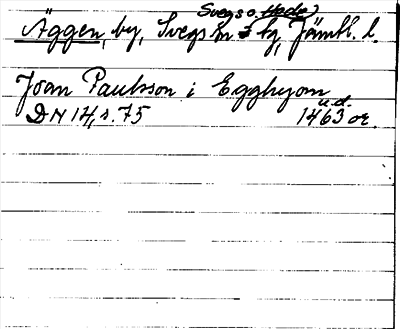 Svegs o. Hede
Äggen, by, Svegs sn o tg, Jämtl. l.
Joan Paulsson i Egghyom
u.d.
DN 14, s. 75 1463 or.